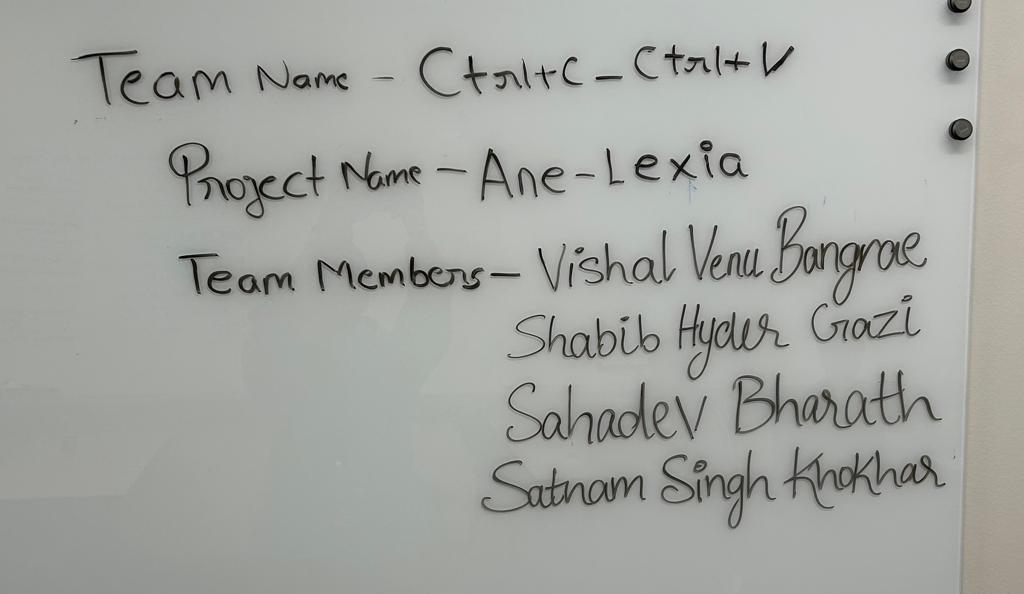 Team Name - Ctrl+C - Ctrl+V
Project Name - Ane-Lexia
Team Members - Vishal Venu Bangrae
Shabib Hyder Gazi
Sahadev Bharath
Satnam Singh Khokhar